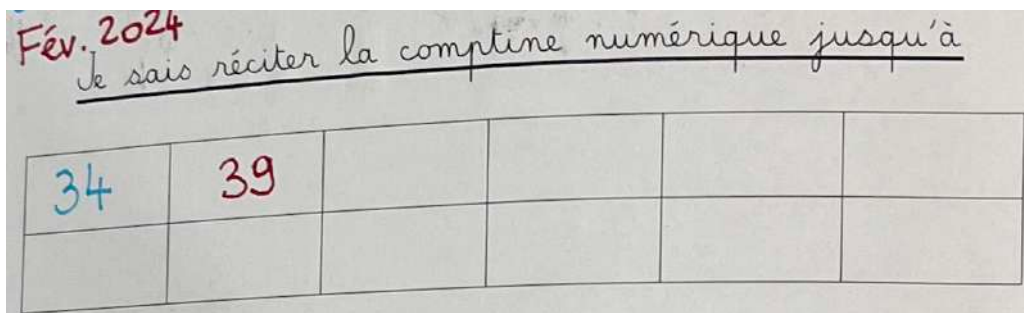 Fév. 2024
Je sais réciter la comptine numérique jusqu'à
34 39